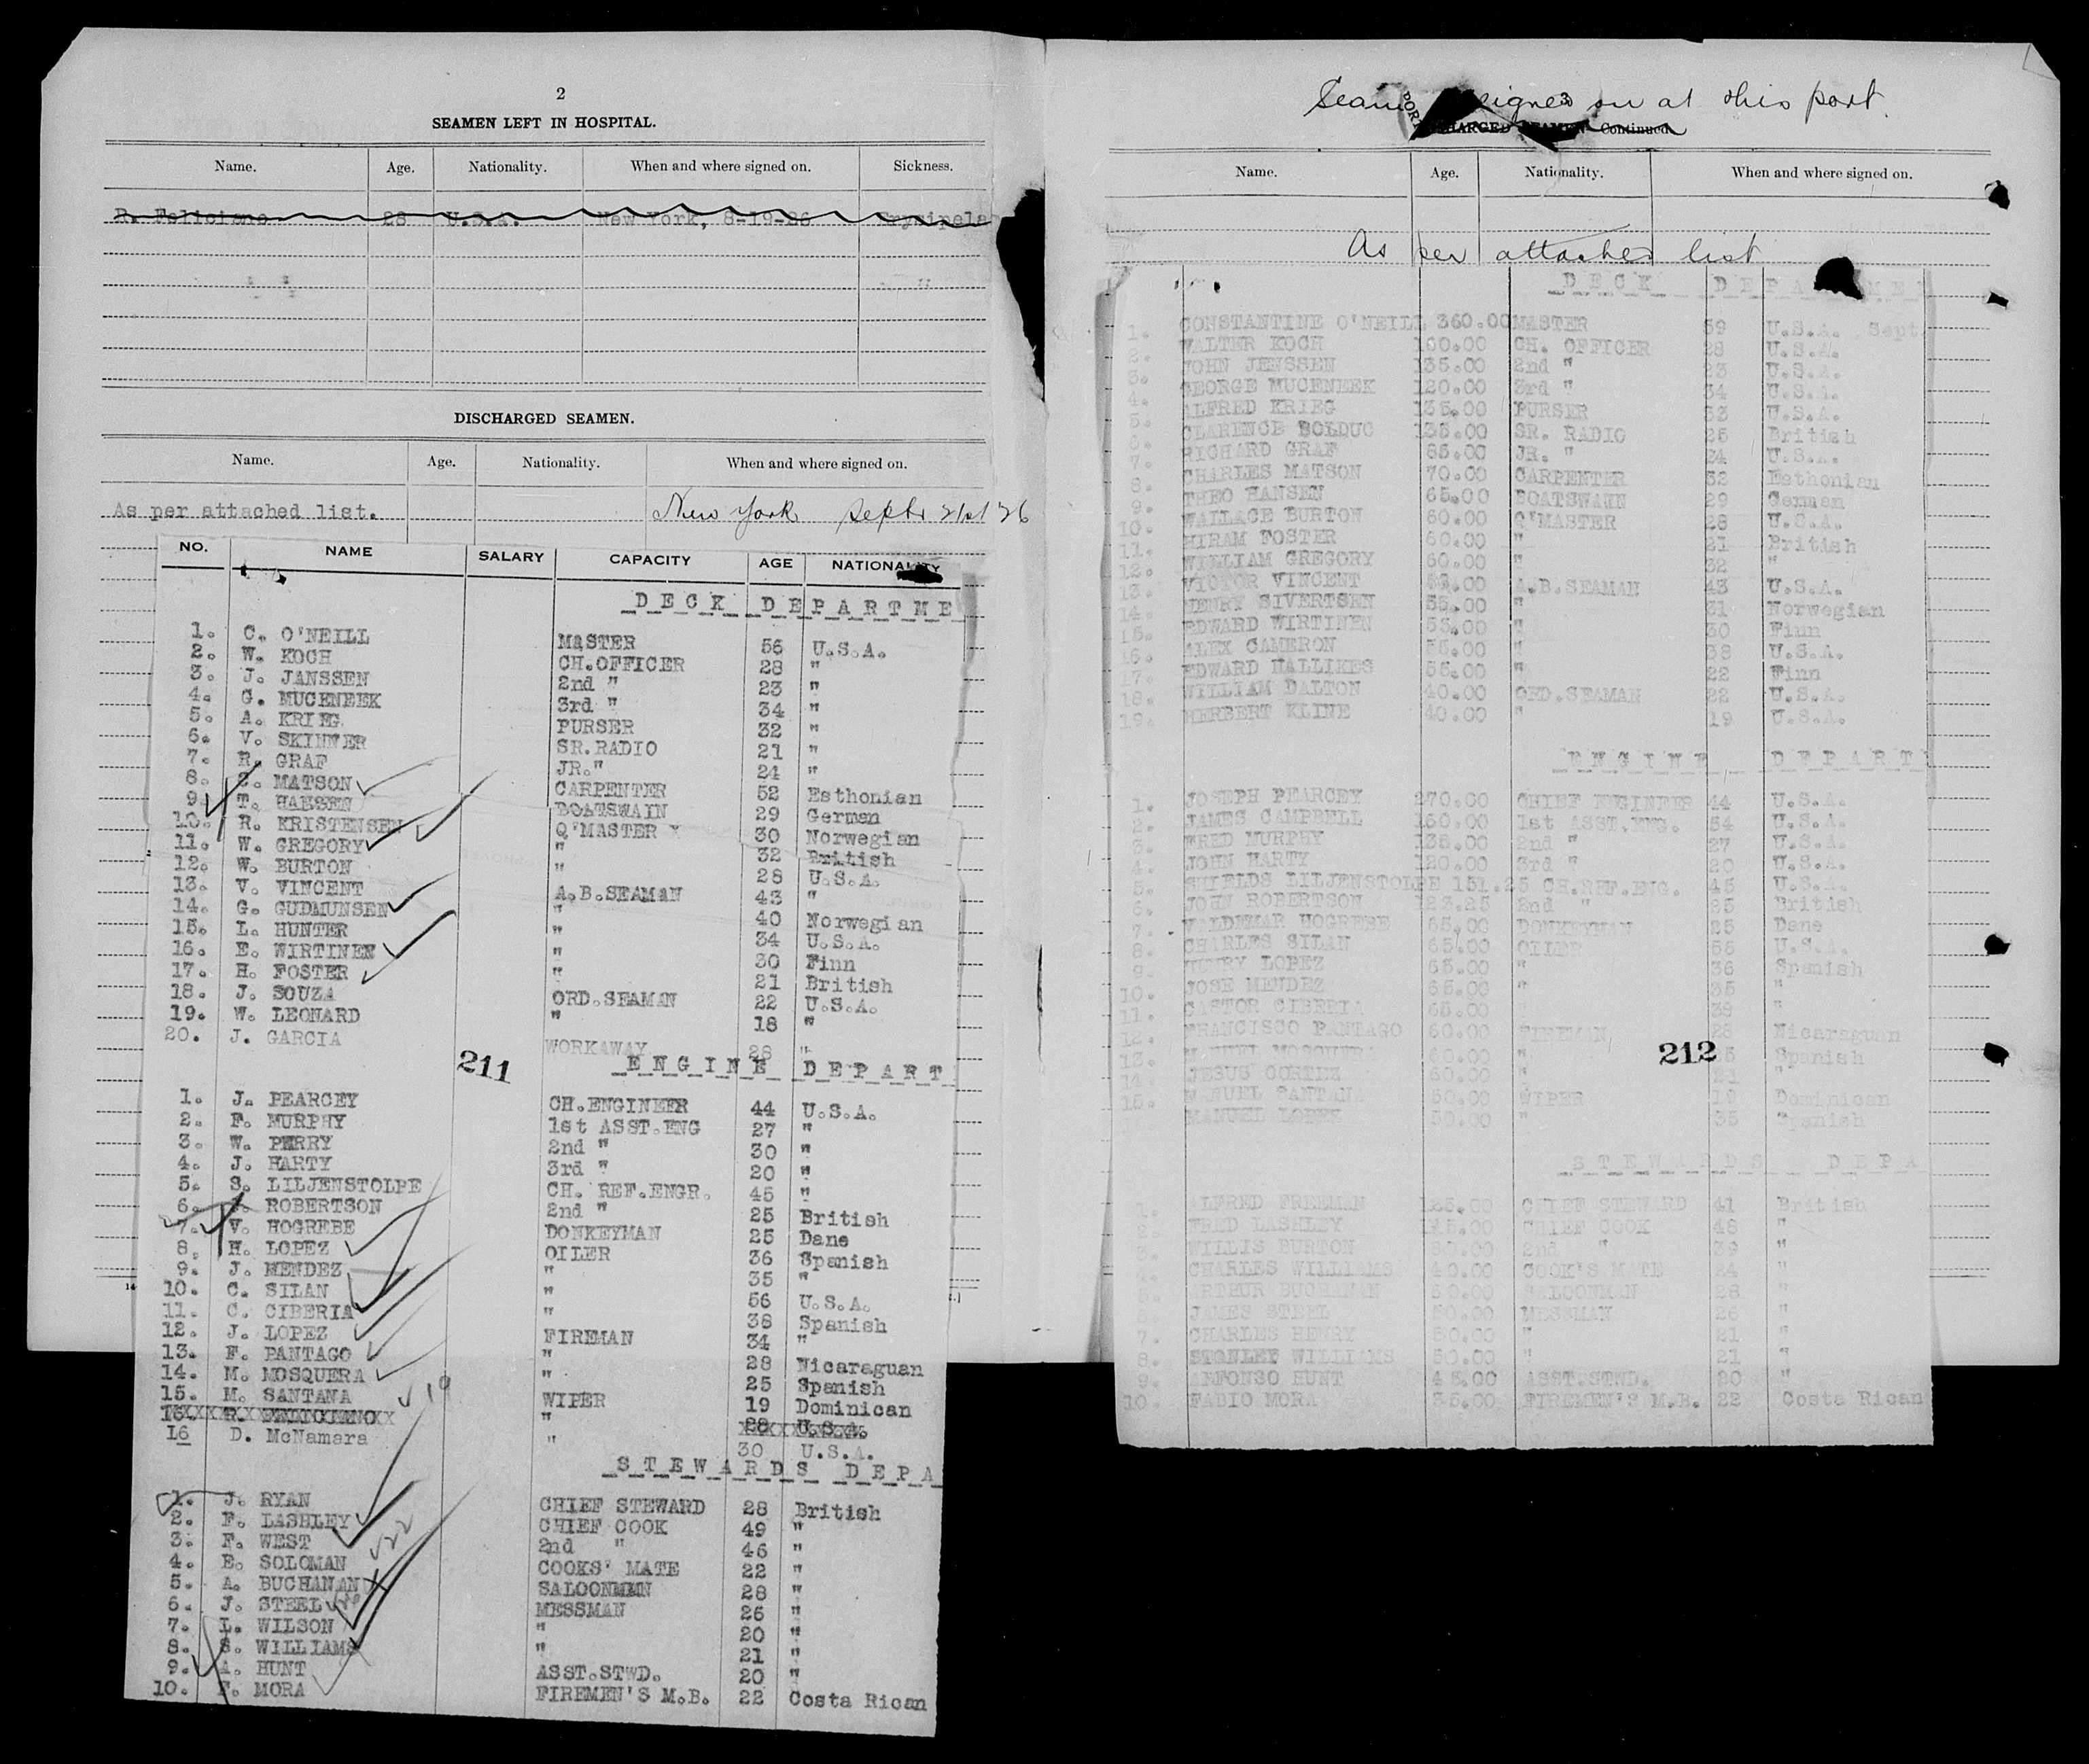 2
SEAMEN LEFT IN HOSPITAL.
Name. Age. Nationality. When and where signed on. Sickness.
R. Feliciano 28 U.S.A. New York, 8-19-26 Erysipela
DISCHARGED SEAMEN.
Name. Age. Nationality. When and where signed on.
As per attached list. New York Septr 21st 26
NO. NAME SALARY CAPACITY AGE NATIONALITY
DECK DEPARTME
1. C. O'NEILL MASTER 56 U.S.A.
2. W. KOCH CH.OFFICER 28 "
3. J. JANSSEN 2nd " 23 "
4. G. MUCENEEK 3rd " 34 "
5. A. KRIEG PURSER 32 "
6. V. SKINNER SR.RADIO 21 "
7. R. GRAF JR." 24 "
8. MATSON CARPENTER 52 Esthonian
9. T. HANSEN BOATSWAIN 29 German
10. R. KRISTENSEN Q'MASTER 30 Norwegian
11. W. GREGORY " 32 British
12. W. BURTON " 28 U.S.A.
13. V. VINCENT A.B.SEAMAN 43 "
14. G. GUDMUNSEN " 40 Norwegian
15. L. HUNTER " 34 U.S.A.
16. E. WIRTINEN " 30 Finn
17. H. FOSTER " 21 British
18. J. SOUZA ORD.SEAMAN 22 U.S.A.
19. W. LEONARD " 18 "
20. J. GARCIA WORKAWAY 28 "
211
ENGINE DEPART
1. J. PEARCEY CH.ENGINEER 44 U.S.A.
2. F. MURPHY 1st ASST.ENG 27 "
3. W. PERRY 2nd " 30 "
4. J. HARTY 3rd " 20 "
5. S. LILJENSTOLPE CH. REF.ENGR. 45 "
6. J. ROBERTSON 2nd " 25 British
7. V. HOGREBE DONKEYMAN 25 Dane
8. H. LOPEZ OILER 36 Spanish
9. J. MENDEZ " 35 "
10. C. SILAN " 56 U.S.A.
11. C. CIBERIA " 38 Spanish
12. J. LOPEZ FIREMAN 34 "
13. F. PANTAGO " 28 Nicaraguan
14. M. MOSQUERA " 25 Spanish
15. M. SANTANA WIPER 19 Dominican
16. R. FELICIANO " 28 U.S.A.
16 D. McNamara " 30 U.S.A.
STEWARDS DEPA
1. J. RYAN CHIEF STEWARD 28 British
2. F. LASHLEY CHIEF COOK 49 "
3. F. WEST 2nd " 46 "
4. E. SOLOMAN COOKS' MATE 22 "
5. A. BUCHANAN SALOONMMN 28 "
6. J. STEEL MESSMAN 26 "
7. L. WILSON " 20 "
8. S. WILLIAMS " 21 "
9. A. HUNT ASST.STWD. 20 "
10. F. MORA FIREMEN'S M.B. 22 Costa Rican
Seamen signed on at this port.
3
DISCHARGED SEAMEN—Continued
Name. Age. Nationality. When and where signed on.
As per attached list
DECK DEPARTME
1. CONSTANTINE O'NEILL 360.00 MASTER 59 U.S.A. Sept
2. WALTER KOCH CH. OFFICER 28 U.S.A.
3. JOHN JENSSEN 135.00 2nd " 23 U.S.A.
4. GEORGE MUCENEEK 120.00 3rd " 34 U.S.A.
5. ALFRED KRIEG 135.00 PURSER 33 U.S.A.
6. CLARENCE BOLDUC 135.00 SR. RADIO 25 British
7. RICHARD GRAF 85.00 JR. " 24 U.S.A.
8. CHARLES MATSON 70.00 CARPENTER 52 Esthonian
9. THEO HANSEN 65.00 BOATSWANN 29 German
10. WALLACE BURTON 60.00 Q'MASTER 28 U.S.A.
11. HIRAM FOSTER 60.00 " 21 British
12. WILLIAM GREGORY 60.00 " 32 "
13. VICTOR VINCENT A.B.SEAMAN 43 U.S.A.
14. HENRY SIVERTSEN 55.00 " 31 Norwegian
15. EDWARD WIRTINEN 55.00 " 30 Finn
16. ALEX CAMERON 55.00 " 38 U.S.A.
17. EDWARD HALLIKES 55.00 " 22 Finn
18. WILLIAM DALTON 40.00 ORD.SEAMAN 22 U.S.A.
19. HERBERT KLINE 40.00 " 19 U.S.A.
ENGINE DEPART
1. JOSEPH PEARCEY 270.00 CHIEF ENGINEER 44 U.S.A.
2. JAMES CAMPBELL 150.00 1st ASST.ENG. 54 U.S.A.
3. FRED MURPHY 135.00 2nd " 27 U.S.A.
4. JOHN HARTY 120.00 3rd " 20 U.S.A.
5. SHIELDS LILJENSTOLPE 151.25 CH.REF.ENG. 45 U.S.A.
6. JOHN ROBERTSON 123.25 2nd " 25 British
7. VALDEMAR HOGREBE 65.00 DONKEYMAN 25 Dane
8. CHARLES SILAN 65.00 OILER 56 U.S.A.
9. HENRY LOPEZ 65.00 " 36 Spanish
10. JOSE MENDEZ 65.00 " 35 "
11. CASTOR CIBERIA 65.00 " 38 "
12. FRANCISCO PANTAGO 60.00 FIREMAN 28 Nicaraguan
13. MANUEL MOSQUERA 60.00 " 25 Spanish
212
14. JESUS CORTEZ 60.00 " 21 "
15. MANUEL SANTANA 50.00 WIPER 19 Dominican
MANUEL LOPEZ 50.00 " 35 Spanish
STEWARDS DEPA
1. ALFRED FREEMAN 125.00 CHIEF STEWARD 41 British
2. FRED LASHLEY CHIEF COOK 48 "
3. WILLIS BURTON 80.00 2nd " 39 "
4. CHARLES WILLIAMS 40.00 COOK'S MATE 24 "
5. ARTHUR BUCHANAN 50.00 SALOONMAN 28 "
6. JAMES STEEL 50.00 MESSMAN 26 "
7. CHARLES HENRY 50.00 " 21 "
8. STANLEY WILLIAMS 50.00 " 21 "
9. ALFONSO HUNT 45.00 ASST.STWD. 20 "
10. FABIO MORA 35.00 FIREMEN'S M.B. 22 Costa Rican